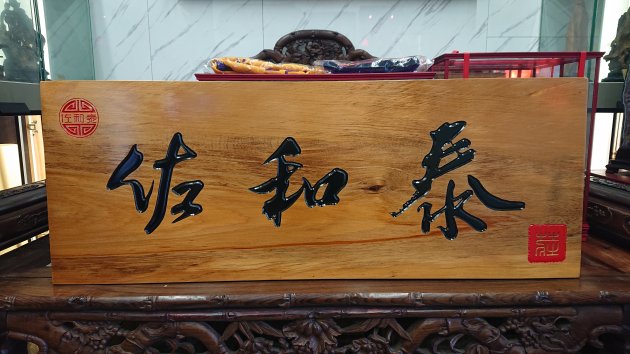 佐和泰
佐和泰